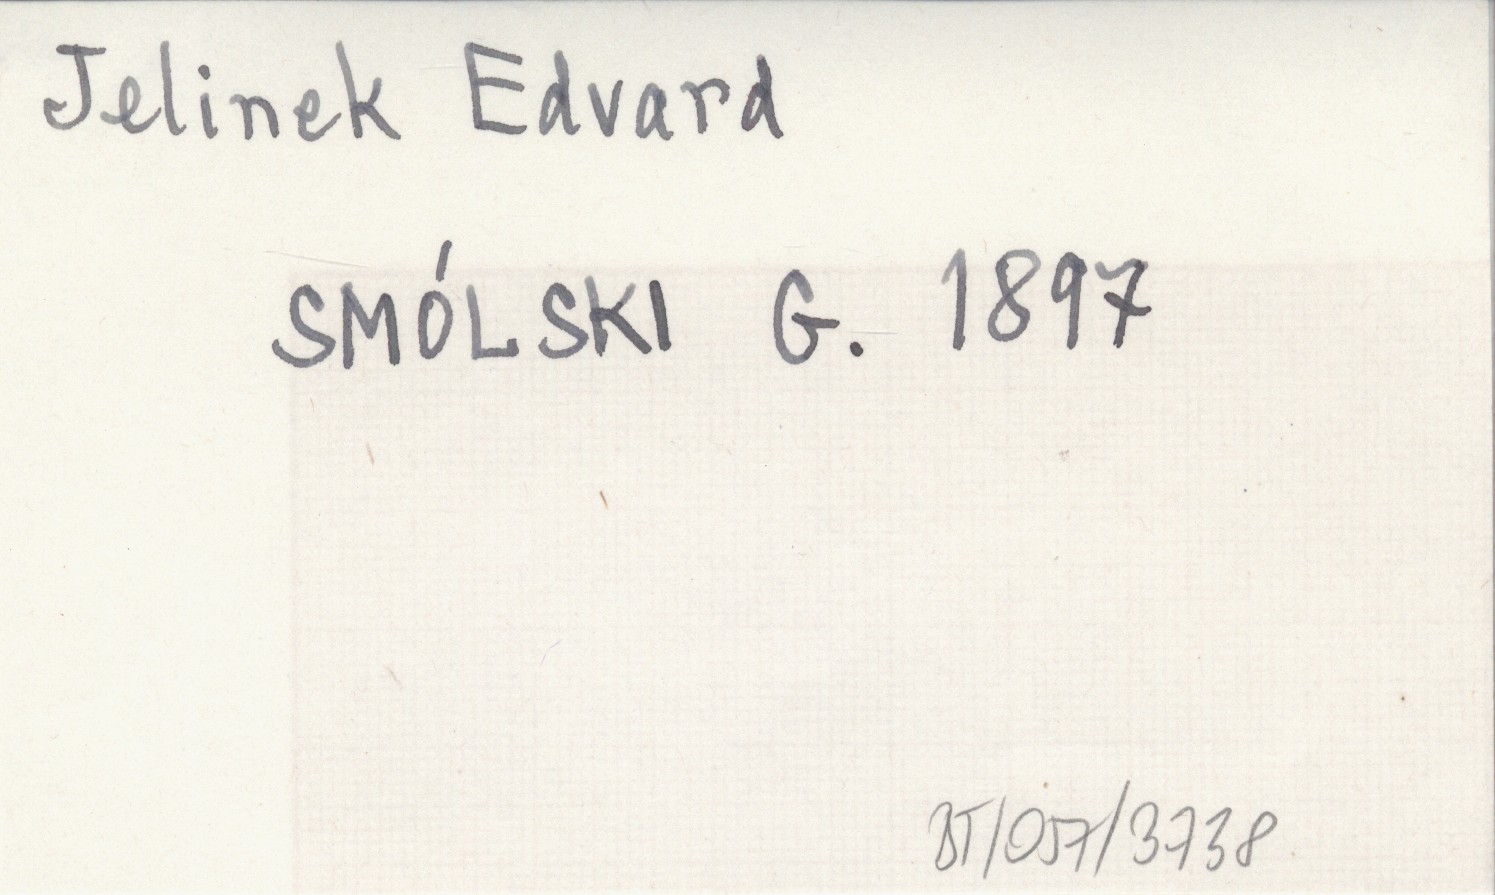 Jelinek Edvard
SMÓLSKI G. 1897
BT/057/3738